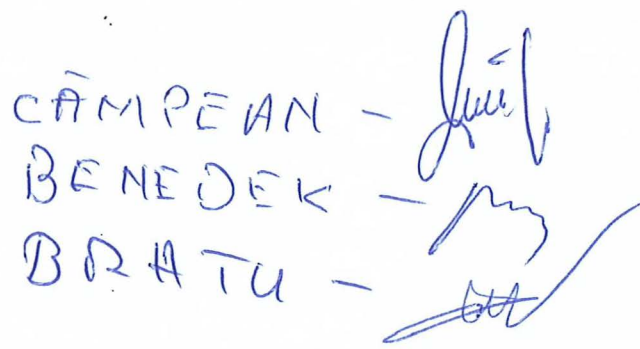 CÂMPEAN -
BENEDEK -
BRATU -